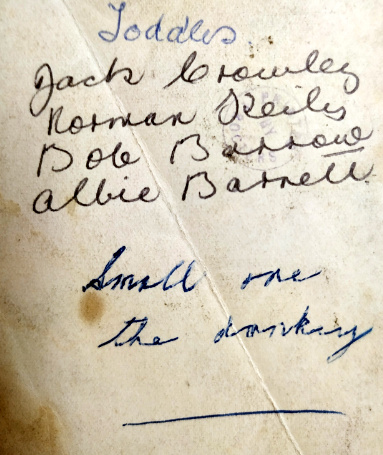 Toddles
Jack Crowley
Norman Keily
Bob Barrow
Albie Barrell
Small one
the donkey